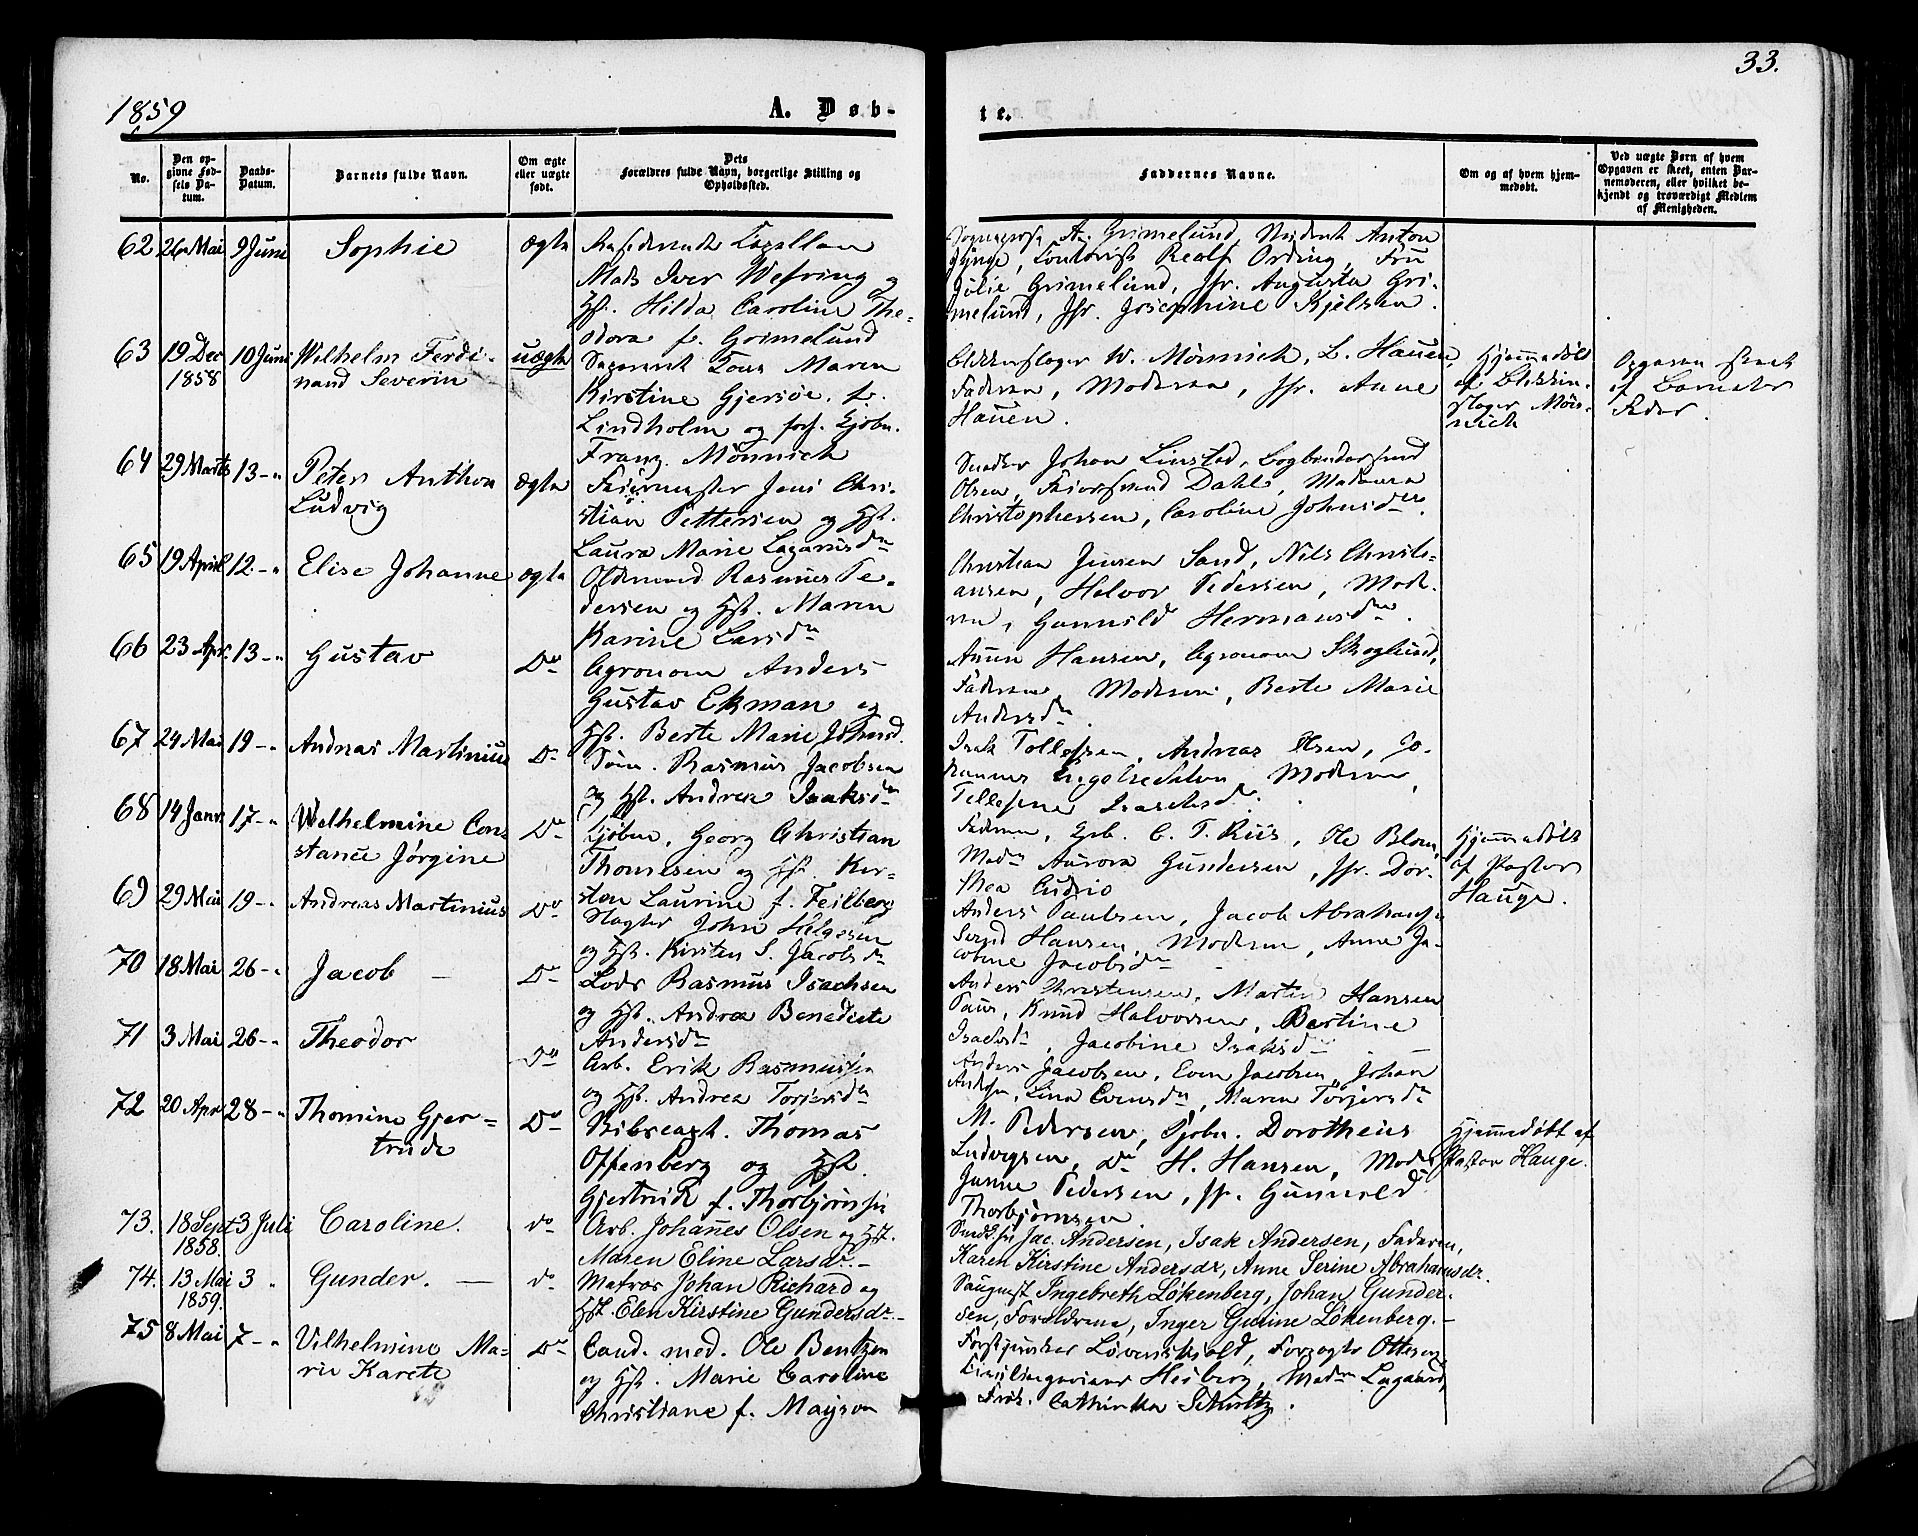 33.
1859
A. Døb-
te.
No.
Den op-
givne Fød-
sels Da-
tum.
Daabs-
Datum.
Barnets fulde Navn.
Om ægte
eller uægte
født.
Dets
Forældres fulde Navn, borgerlige Stilling og
Opholdssted.
Faddernes Navne.
Om og af hvem hjem-
medøbt.
Ved uægte Børn af hvem
Opgaven er skeet, enten Bar-
nemoderen, eller hvilket be-
kjendt og troværdigt Medlem
af Menigheden.
62 26 Mai 9 Juni Sophie ægte Residerende Capellan
Mads Iver Wefring og
Hst. Hilda Caroline The-
odora f. Grimelund
Sogneprest A. Grimelund, Student Anton
Realf Ording, Fru
Julie Grimelund, Jfr. Augusta Gri-
melund, Jfr. Josephine Kjelsen.
63 19 Dec 10 Juni Wilhelm Ferdi- uægte
1858 nand Severin
Maren
Kirstine Gjersøe, f.
Lindholm og Kjøbm.
Franz Mönnich
Blikkenslager W. Mönnich, L. Hauen,
Faderen, Moderen, Jfr. Anne
Hauen.
Hjemmedøbt
af Blikken-
slager Mön-
nich
Opgaven skeet
af Barnets
Fader.
64 29 Marts 13 -" Peter Anthon ægte
Ludvig
Jens Chri-
stian Pettersen og Hst.
Laura Marie Lazarusdr
Snedker Johan Linstad, Bogbindersvend
Olsen, Dahl, Madame
Christophersen, Caroline Johnsdr.
65 19 April 12 -" Elise Johanne ægte
Oldermand Rasmus Pe-
dersen og Hst. Maren
Karine Larsdr
Christian Jensen Sand, Nils Christi-
ansen, Halvor Pedersen, Mode-
ren, Gunnild Hermansdr.
66 23 Apr. 13 -" Gustav Do
Agronom Anders
Gustav Ekman og
Hst. Berte Marie Johnsd.
Hansen, Agronom Skoglund,
Faderen, Moderen, Berte Marie
Andersdr.
67 24 Mai 19 -" Andreas Martinius Do
Søm. Rasmus Jacobsen
og Hst. Andrea Isaksdr
Isak Tollefsen, Andreas Olsen, Jo-
hannes Moderen,
68 14 Janr. 17 -" Wilhelmine Con- Do
stance Jørgine
Kjøbm. Georg Christian
Thomesen og Hst. Kir-
stine Laurine f. Feilberg
Faderen, C. T. Riis, Ole Blom,
Madm Aurora Gundersen, Jfr. Dor-
thea Cudrio
Hjemmedøbt
af Pastor
Hauge.
69 29 Mai 19 -" Andreas Martinius Do
Slagter John Helgesen
og Hst. Kirsten S. Jacobsdr
Anders Paulsen, Jacob Abrahams.
Hansen, Moderen, Anne Ja-
cobine Jacobsdr
70 18 Mai 26 -" Jacob - Do
Lods Rasmus Isachsen
og Hst. Andrea Benedicte
Andersdr
Anders Christensen, Martin Hansen
Paus, Knud Halvorsen, Bertine
Isachsdr, Jacobine Isaksdr -
71 3 Mai 26 -" Theodor Do
Arb. Erik Rasmussen
og Hst. Andrea Torjersdr
Anders Jacobsen, Even Jacobsen, Johan
Lina Evensdr, Maren Torjersdr
72 20 Apr 28 -" Thomine Gjer- Do
trude
Thomas
Offenberg og Hst.
f. Thorbjørnsen
M. Pedersen, Kjøbm. Dorotheus
Ludvigsen, Do H. Hansen, Mad.
Janne Pedersen, Jfr. Gunnild
Thorbjørnsen
Hjemmedøbt af
Pastor Hauge.
73. 18 Sept 3 Juli Caroline. do
1858.
Arb. Johannes Olsen og Hst.
Maren Eline Larsdr.-
Jac. Andersen, Isak Andersen, Faderen,
Karen Kirstine Andersdr, Anne Serine Abrahamsdr.
74. 13 Mai 3 " Gunder. - do
1859.
Matros Johan Richard og
Hst. Elen Kirstine Gundersdr.-
Ingebreth Løkenberg, Johan Gunder-
sen, Forældrene, Inger Gurine Løkenberg.-
75 8 Mai 7 -" Vilhelmine Ma- Do
rie Karete
Cand. med. Ole Bentzen
og Hst. Marie Caroline
Christiane f. Mayson
Forstjunker Løvenskiold, Forvalter Ottesen,
Heiberg, Madm Lagaard,
Frøk. Cathinka Schultz.